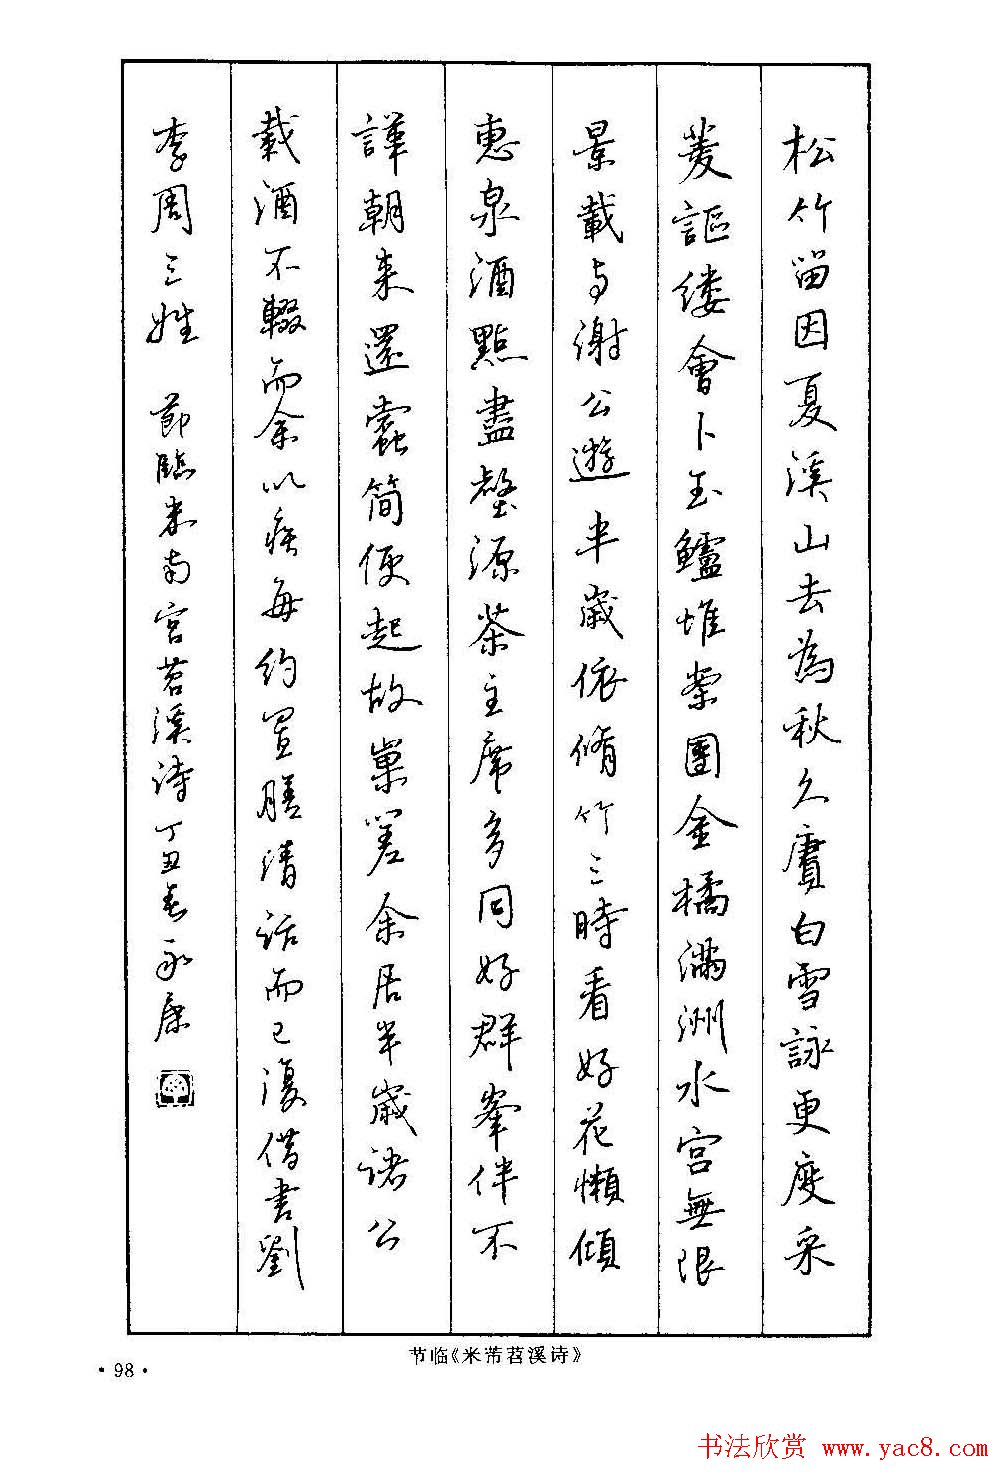 松竹留因夏溪山去為秋久賡白雪詠更度采
菱謳缕會卜玉鱸堆案團金橘滿洲水宫無限
景載与謝公遊半歲依脩竹三時看好花懶傾
惠泉酒點盡壑源茶主席多同好群峯伴不
譁朝来還蠹简便起故巢嗟余居半歲诸公
載酒不輟而余以疾每约置膳清话而已復借書劉
李周三姓 節臨米南宫苕溪诗丁丑春永康
节临《米芾苕溪诗》
·98·
书法欣赏 www.yac8.com